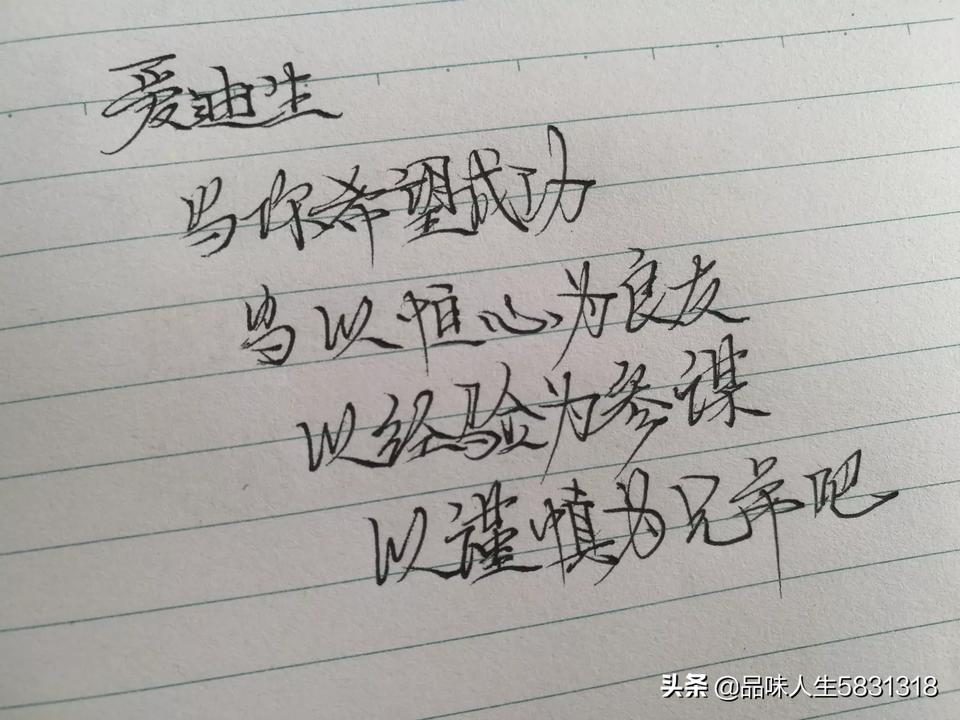 爱迪生
当你希望成功
当以恒心为良友
以经验为参谋
以谨慎为兄弟吧
头条 @品味人生5831318